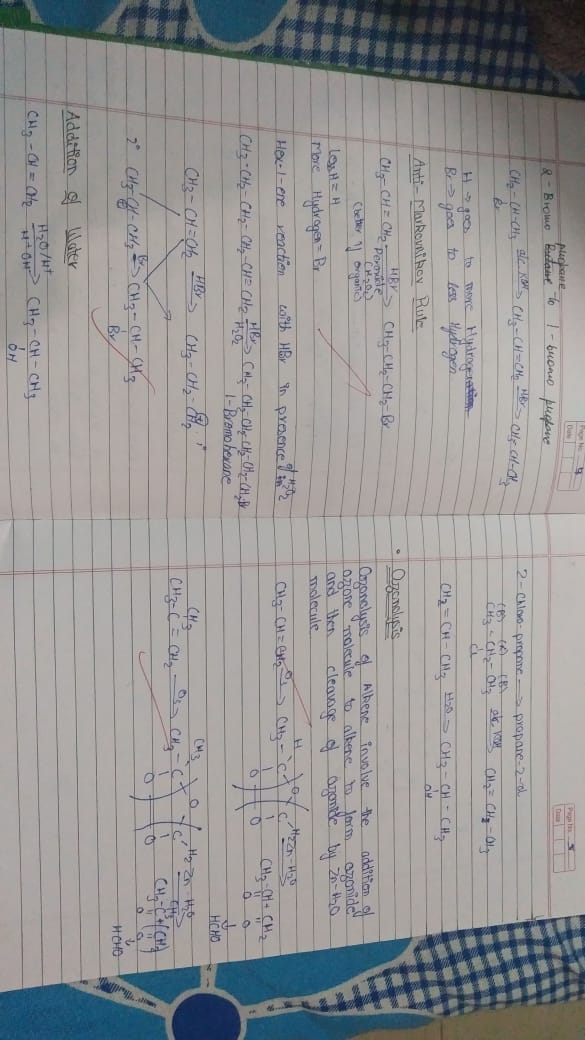 Page No. 4
Date
2-Bromo propane to 1-bromo propane
CH3-CH-CH3 alc KOH → CH3-CH=CH2 HBr →
Br
H → goes to more Hydrogen
Br → goes to less Hydrogen
Anti-Markovnikov Rule
CH3-CH=CH2 HBr → CH3-CH2-CH2-Br
Peroxide
(H2O2)
Less H = H
More Hydrogen = Br
Hex-1-ene reaction with HBr in presence of H2O2
CH3-CH2-CH2-CH2-CH=CH2 HBr → CH3-CH2-CH2-CH2-CH2-CH2Br
H2O2
1-Bromohexane
CH3-CH=CH2 HBr → CH3-CH2-CH2 1°
2° CH3-CH-CH3 Br → CH3-CH-CH3
Br
Addition of Water
CH3-CH=CH2 H2O/H+ → CH3-CH-CH3
H+OH-
OH
Page No. 5
Date
2-Chloro-propane → propane-2-ol
(B) (α) (B)
CH3-CH2-CH3 alc KOH → CH2=CH2-CH3
Cl
CH2=CH-CH3 H2O → CH3-CH-CH3
OH
• Ozonolysis
Ozonolysis of Alkene involve the addition of
ozone molecule to alkene to form ozonide
and then cleavage of ozonide by Zn-H2O
molecule
H
CH3-CH=CH2 O3 → CH3-C O C H2 Zn-H2O → CH3-CH + CH2
O O O O
HCHO
CH3 CH3
CH3-C=CH2 O3 → CH3-C O C H2 Zn-H2O → CH3-C + CH2
CH3
O O O O
HCHO